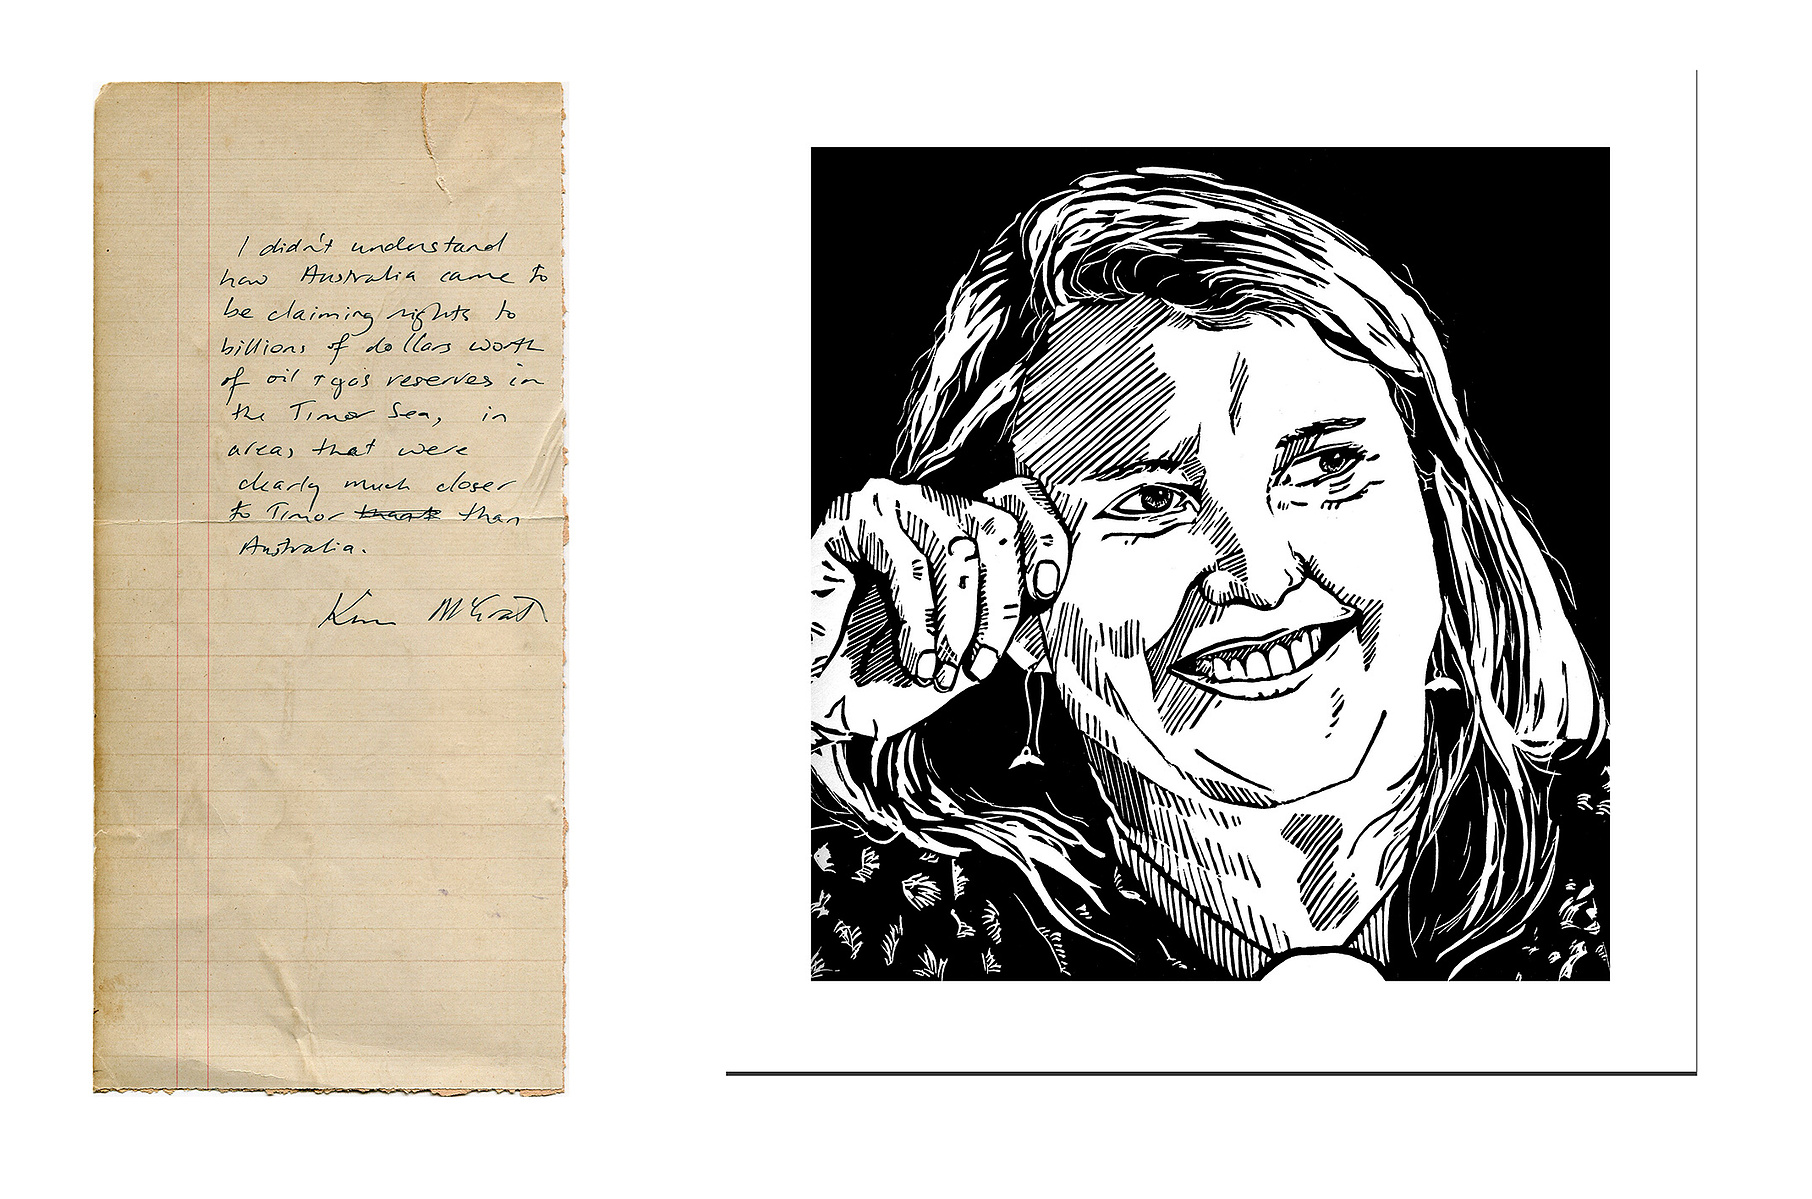 I didn't understand
how Australia came to
be claiming rights to
billions of dollars worth
of oil + gas reserves in
the Timor Sea, in
areas that were
clearly much closer
to Timor than
Australia.
Kim McGrath